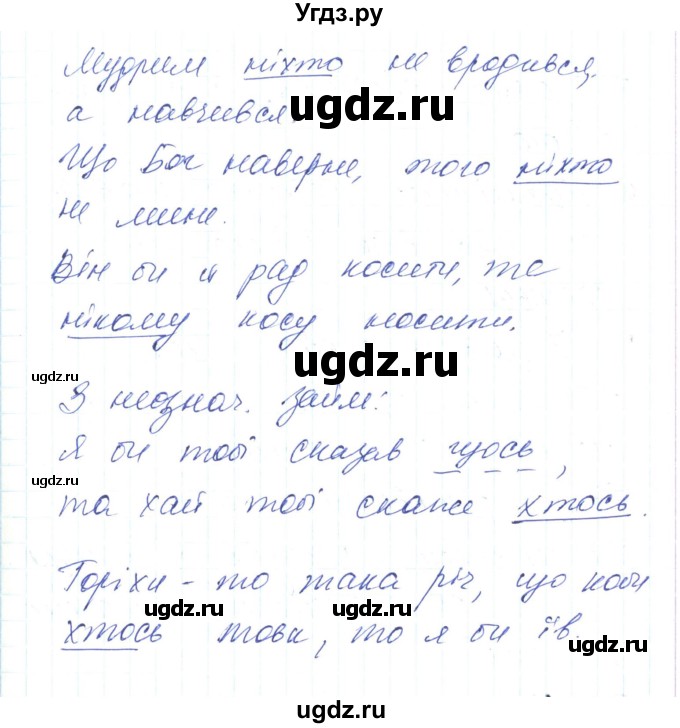 Угдз.ру
Мудрим ніхто не вродився,
а навчився.
ugdz.ru
Що Бог наверне, того ніхто
не мине.
ugdz.ru
Він би й рад косити, та
нікому косу носити.
ugdz.ru
ugdz.ru
З неознач. займ:
Я би тобі сказав щось,
ugdz.ru
та хай тобі скаже хтось.
Горіхи - то така річ, що коби
ugdz.ru ugdz.ru
хтось товк, то я би їв.
ugdz.ru
ugdz.ru